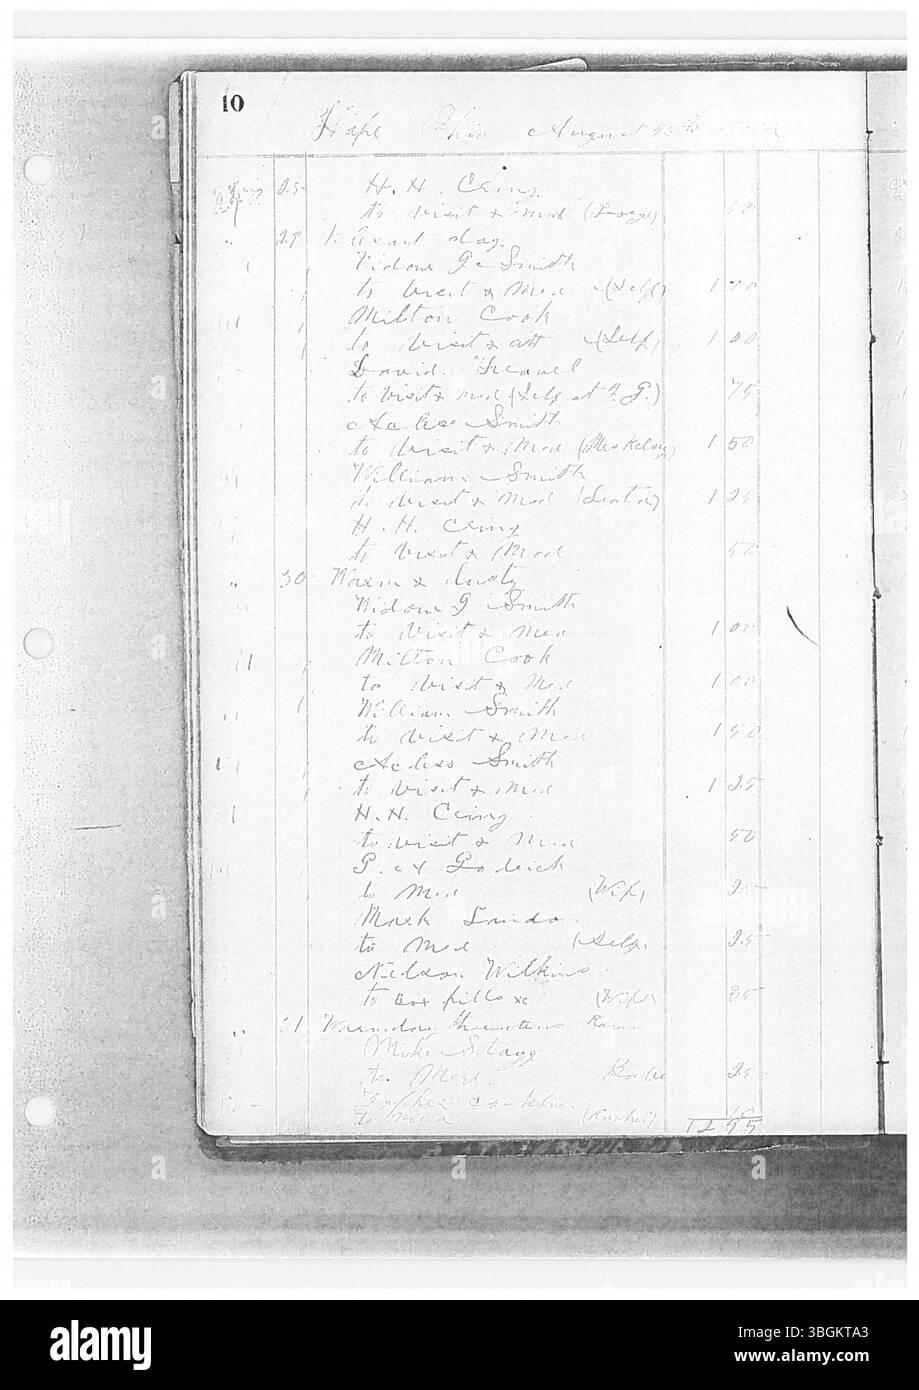 10
Hope Ohio August
Aug 25 H. H. Cring
to visit & med (George) 50
" 29 Pleasant day
Widow G Smith
to visit & Med (Self) 1 00
Milton Cook
to visit & att (Self) 1 00
David
to visit & med (Self at F. G.) 75
Acless Smith
to visit & Med 1 50
William Smith
to visit & Med 1 25
H. H. Cring
to visit & Med 50
" 30 Warm & dusty
Widow G Smith
to visit & Med 1 00
Milton Cook
to visit & Med 1 00
William Smith
to visit & Med 1 50
Acless Smith
to visit & Med 1 25
H. H. Cring
to visit & Med 50
to Med (Wife) 25
Mark
to Med (Self) 25
Nelson Wilkins
to Box pills &c (Wife)
" 31 Rain
Mike Stagg
to Med Babe 25
to Med (Rachel)
alamy
Image ID: 3BGKTA3
www.alamy.com